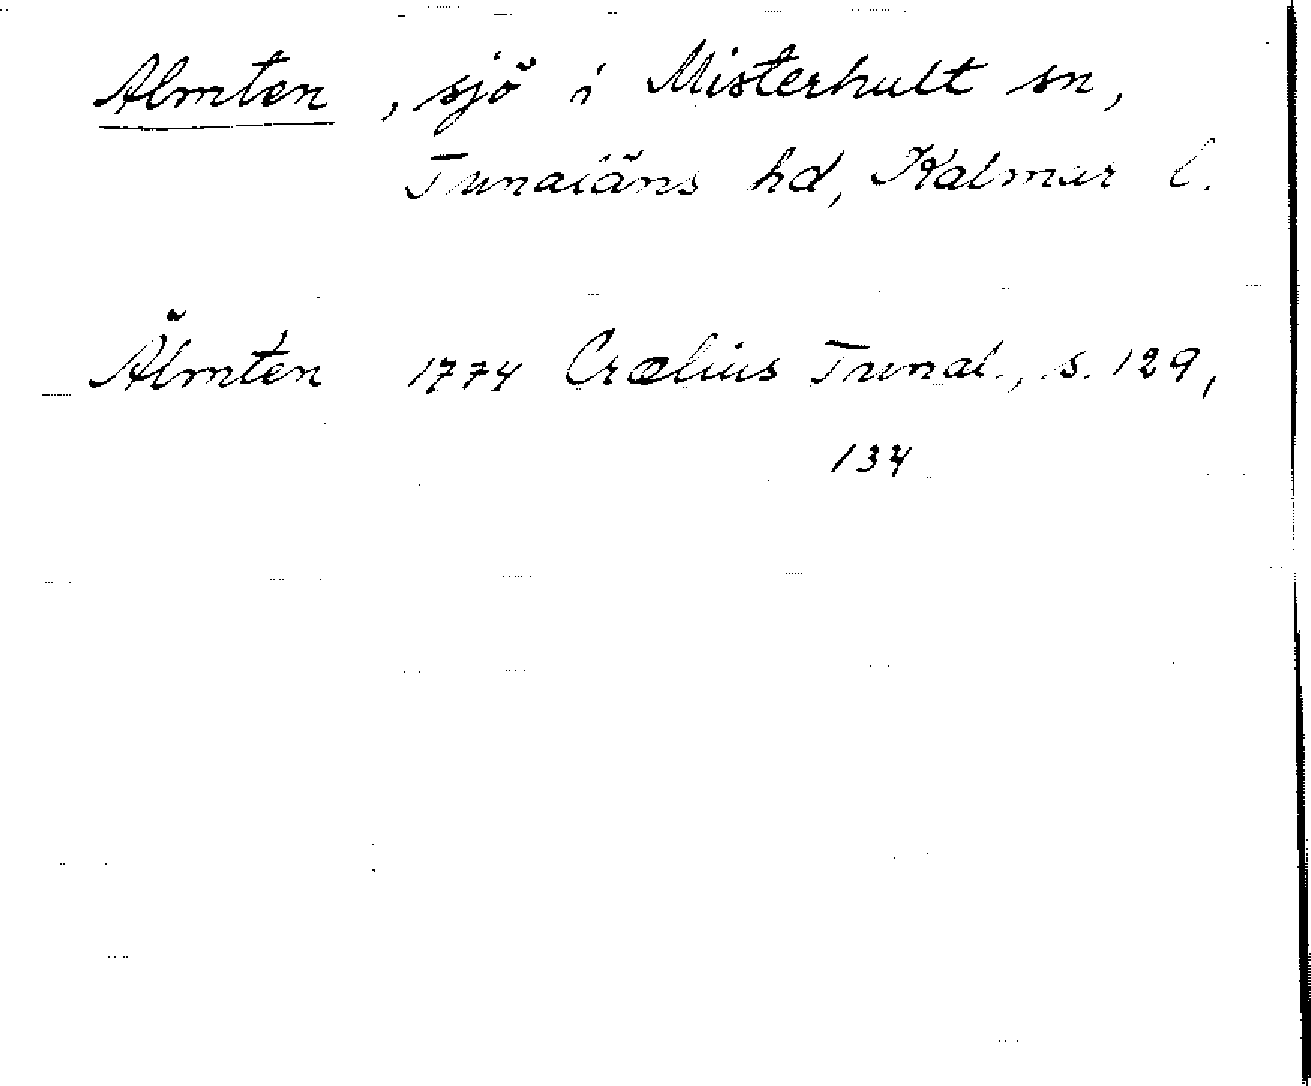 Älmten, sjö i Misterhult sn,
Tunaläns hd, Kalmar l.
Älmten 1774 Crælius Tunal., s. 129,
134